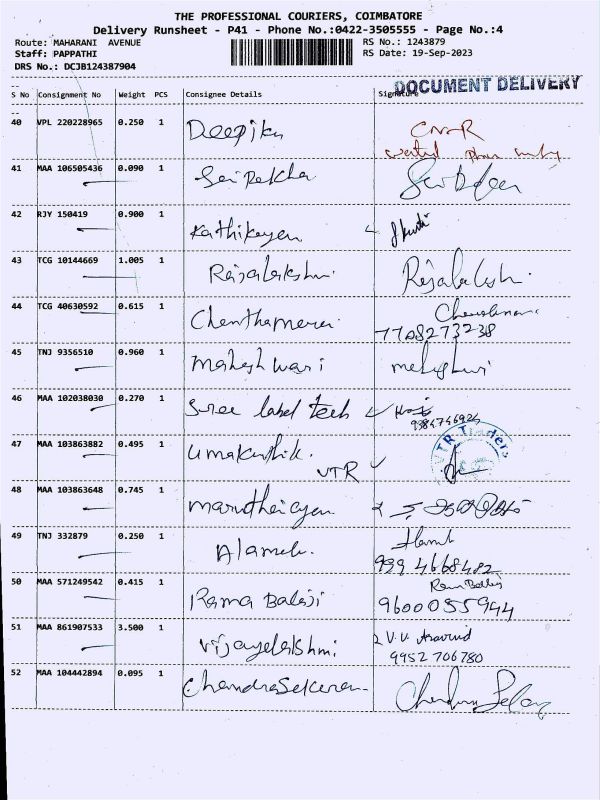 THE PROFESSIONAL COURIERS, COIMBATORE
Delivery Runsheet - P41 - Phone No.:0422-3505555 - Page No.:4
Route: MAHARANI AVENUE RS No.: 1243879
Staff: PAPPATHI RS Date: 19-Sep-2023
DRS No.: DCJB124387904
DOCUMENT DELIVERY
S No Consignment No Weight PCS Consignee Details Signature
40 VPL 220228965 0.250 1 Deepika
41 MAA 106505436 0.090 1 Sai Rekha
42 RJY 150419 0.900 1 Kathikeyen
43 TCG 10144669 1.005 1 Rajalakshmi
44 TCG 40630592 0.615 1 Chenthamerai
7708273238
45 TNJ 9356510 0.960 1 Maheshwari
46 MAA 102038030 0.270 1 Sree label tech
9384746924
47 MAA 103863882 0.495 1 Umakarthik. VTR Traders
VTR
48 MAA 103863648 0.745 1
49 TNJ 332879 0.250 1 Alamelu.
999 4668482
50 MAA 571249542 0.415 1 Rama Balaji Ram Balaji
9600055944
51 MAA 861907533 3.500 1 Vijayalakshmi V.V. Aravind
9952 706780
52 MAA 104442894 0.095 1 ChandraSekeran